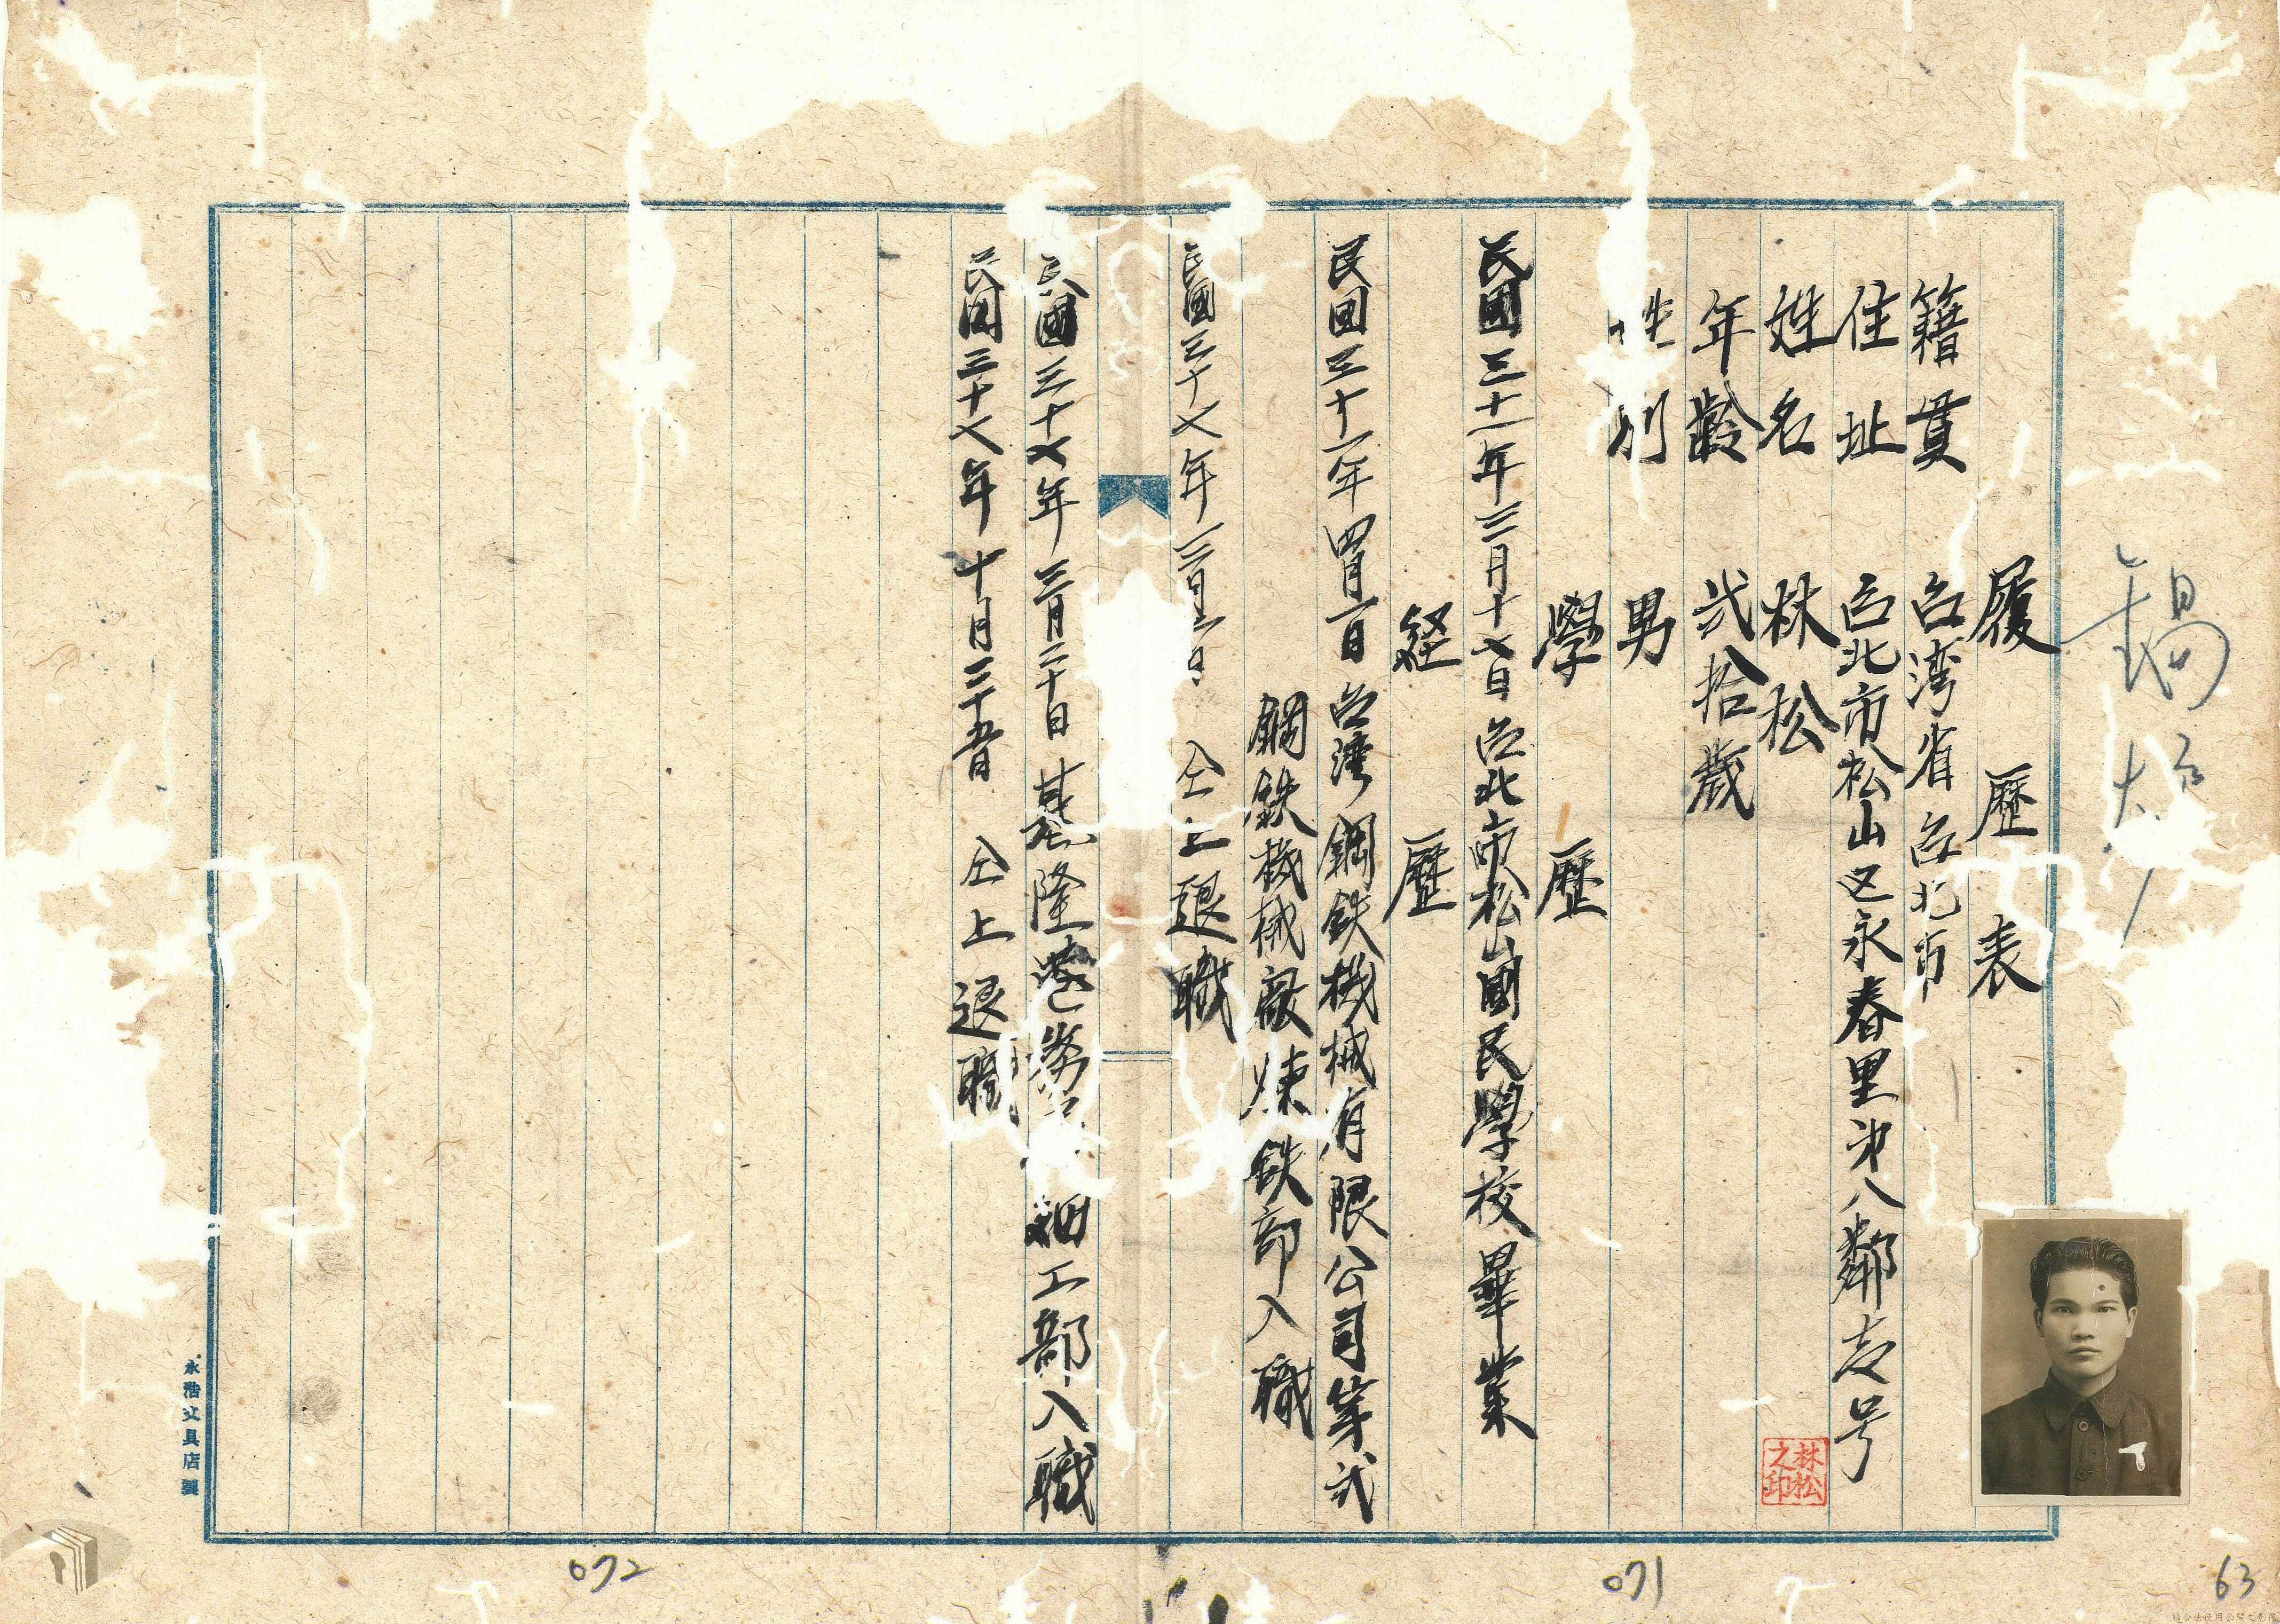 履歷表
籍貫 台湾省台北市
住址 台北市松山区永春里第八鄰友号
姓名 林松
林松之印
年齡 弐拾歲
性別 男
學歷
民國三十一年三月十七日台北市松山國民學校畢業
経歷
民国三十一年四月一日台湾鋼鉄機械有限公司第弐
鋼鉄機械廠煉鉄部入職
民國三十七年 仝上退職
民國三十七年三月二十日基隆港務 細工部入職
民國三十七年十月二十五日 仝上退職
永浩文具店製
071
072
63